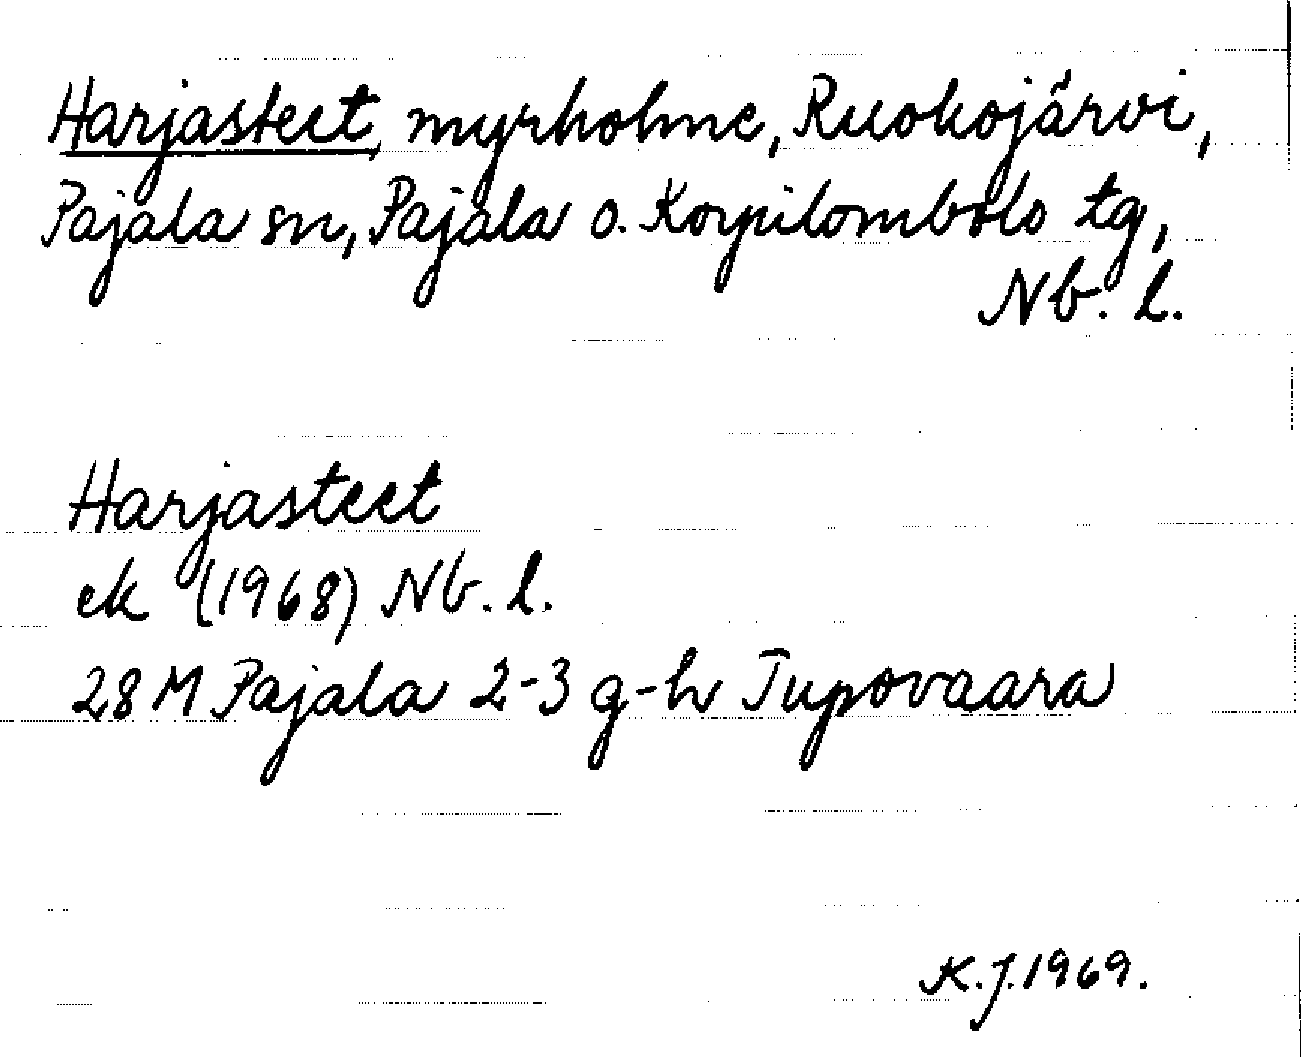 Harjasteet, myrholme, Ruokojärvi,
Pajala sn, Pajala o. Korpilombolo tg,
Nb. l.
Harjasteet
ek (1968) Nb. l.
28 M Pajala 2-3 g-h Tupovaara
K.J. 1969.